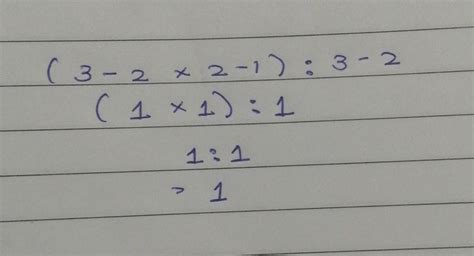 (3-2 × 2-1) : 3-2
(1 × 1) : 1
1:1
= 1